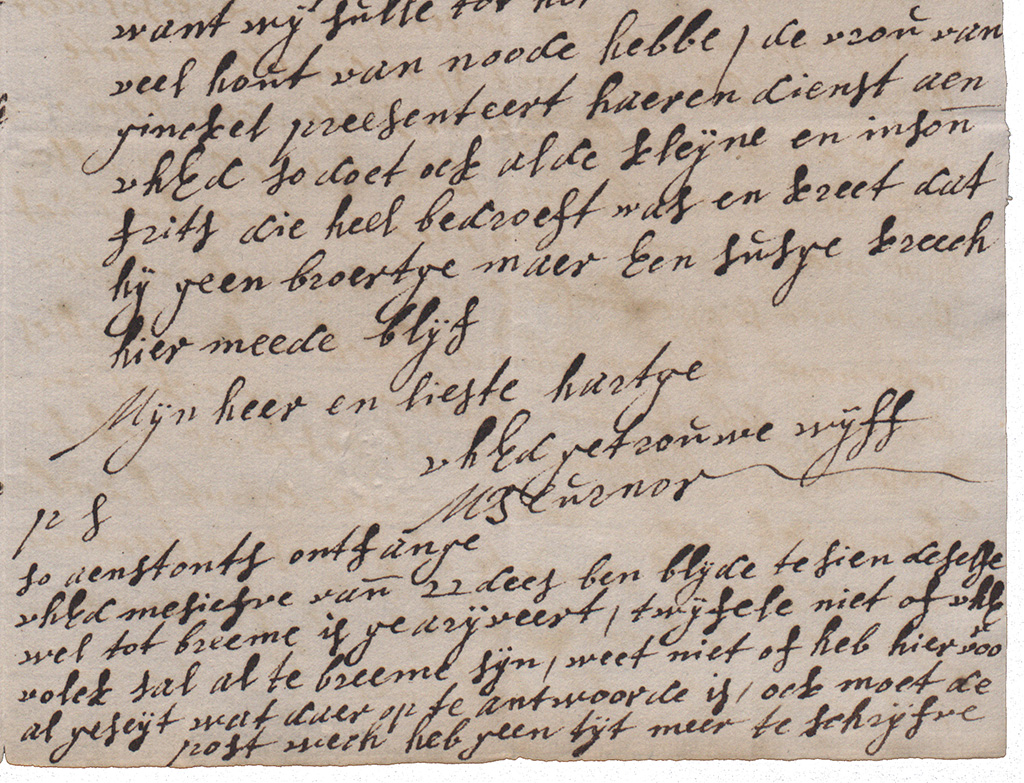 want wÿ sulle tot het
veel hout van noode hebbe / de vroŭ van
ginckel preesenteert haeren dienst aen
uhEd so doet ock al de kleÿne en inson
frits die heel bedroeft was en kreet dat
hÿ geen broertge maer Een susge kreech
hier meede blÿf
Mÿn heer en lieste hartge
uhEd getrouwe wÿff
M Turnor
p s
so aenstonts ontfange
uhEd mesiesve van 22 dees ben blyde te sien deselfe
wel tot breeme is gearÿveert, twÿfele niet of uhE
volck sal al te breeme sÿn, weet niet of heb hier voo
al geseÿt wat daer op te antwoorde is, ock moet de
post wech heb geen tÿt meer te schrÿfve